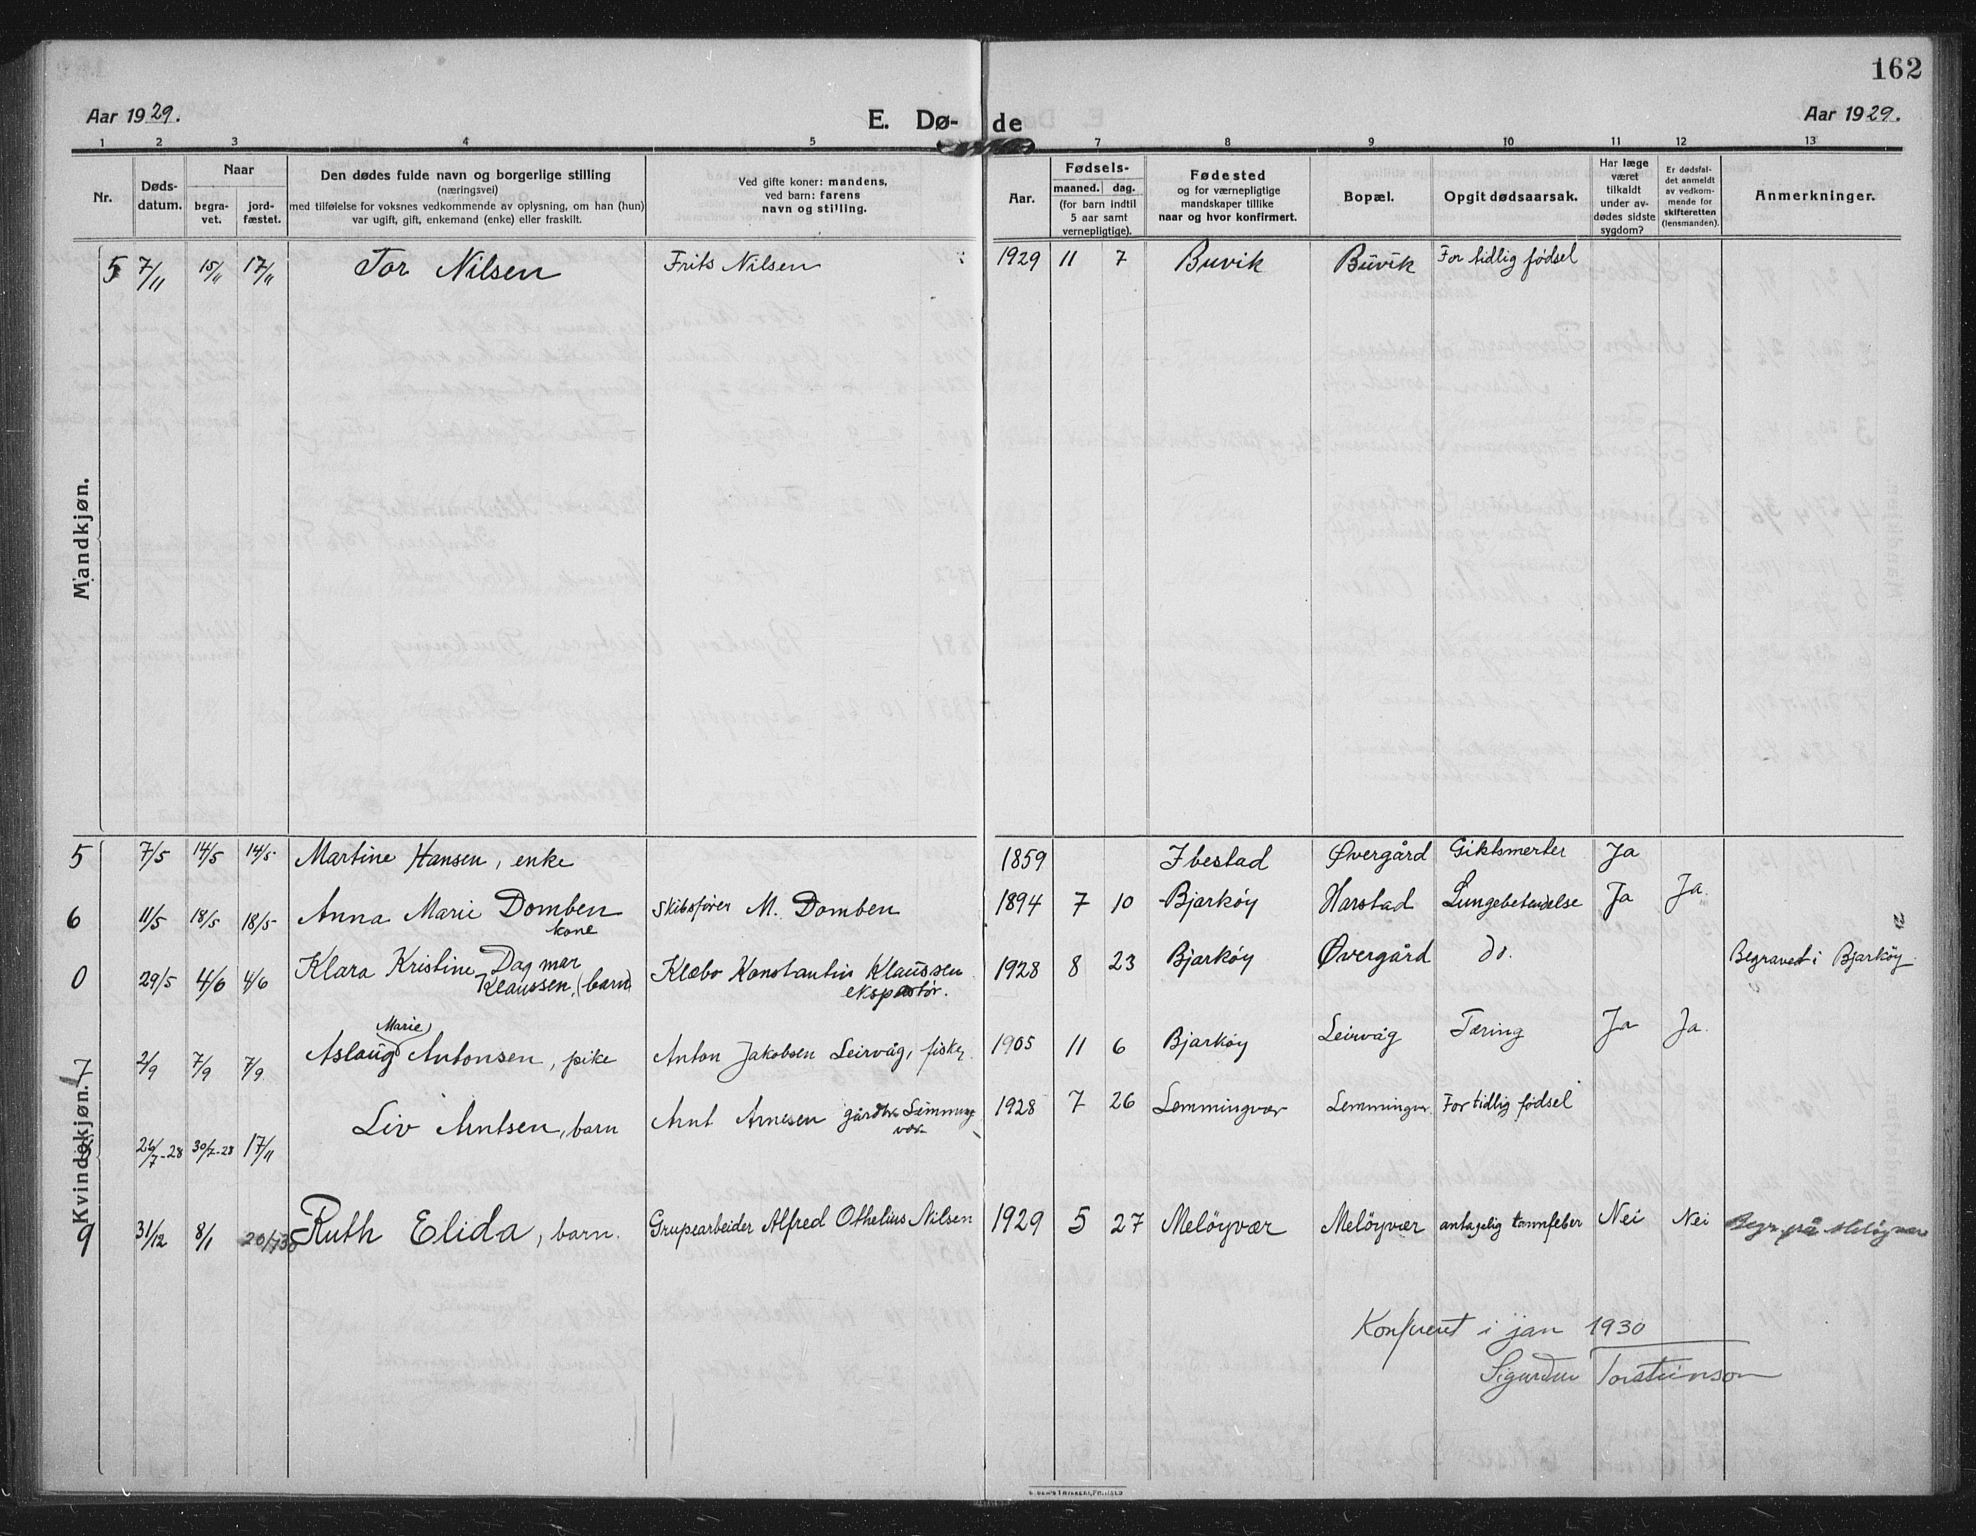 162
Aar 1929.
E. Dø- de
Aar 1929.
1 2 3 4 5 7 8 9 10 11 12 13
Nr.
Døds-
datum.
Naar
begra-
vet.
jord-
fæstet.
Den dødes fulde navn og borgerlige stilling
(næringsvei)
med tilføielse for voksnes vedkommende av oplysning, om han (hun)
var ugift, gift, enkemand (enke) eller fraskilt.
Ved gifte koner: mandens,
ved barn: farens
navn og stilling.
Aar.
Fødsels-
maaned. dag.
(for barn indtil
5 aar samt
vernepligtige).
Fødested
og for værnepligtige
mandskaper tillike
naar og hvor konfirmert.
Bopæl.
Opgit dødsaarsak.
Har læge
været
tilkaldt
under av-
dødes sidste
sygdom?
Er dødsfal-
det anmeldt
av vedkom-
mende for
skifteretten
(lensmanden).
Anmerkninger.
Mandkjøn.
5 7/11 15/11 17/11 Tor Nilsen Frits Nilsen 1929 11 7 Buvik Buvik For tidlig fødsel
Kvindekjøn.
5 7/5 14/5 14/5 Martine Hansen, enke 1859 Ibestad Øvergård Giktsmerter Ja
6 11/5 18/5 18/5 Anna Marie Domben Skibsfører M. Domben 1894 7 10 Bjarköy Harstad Lungebetendelse Ja Ja.
kone
0 29/5 4/6 4/6 Klara Kristine Dagmar Klæbo Konstantin Klaussen 1928 8 23 Bjarköy Øvergård do. Begravet i Bjarköy
Klaussen, (barn) ekspeditør.
Marie
7 2/9 7/9 7/9 Aslaug Antonsen, pike Anton Jakobsen Leirvåg, fisker 1905 11 6 Bjarköy Leirvåg Tæring Ja Ja.
26/7-28 30/7-28 17/11 Liv Arntsen, barn Arnt Arnesen gårdbr. Lemming- 1928 7 26 Lemmingvær Lemmingvr. For tidlig fødsel
vær
9 31/12 8/1 20/7 30 Ruth Elida, barn. Grupearbeider Alfred Othelius Nilsen 1929 5 27 Melöyvær Melöyvær antagelig tannfeber Nei Nei Begr. på Meløyvær
Konferert i jan 1930
Sigurdur Torsteinson